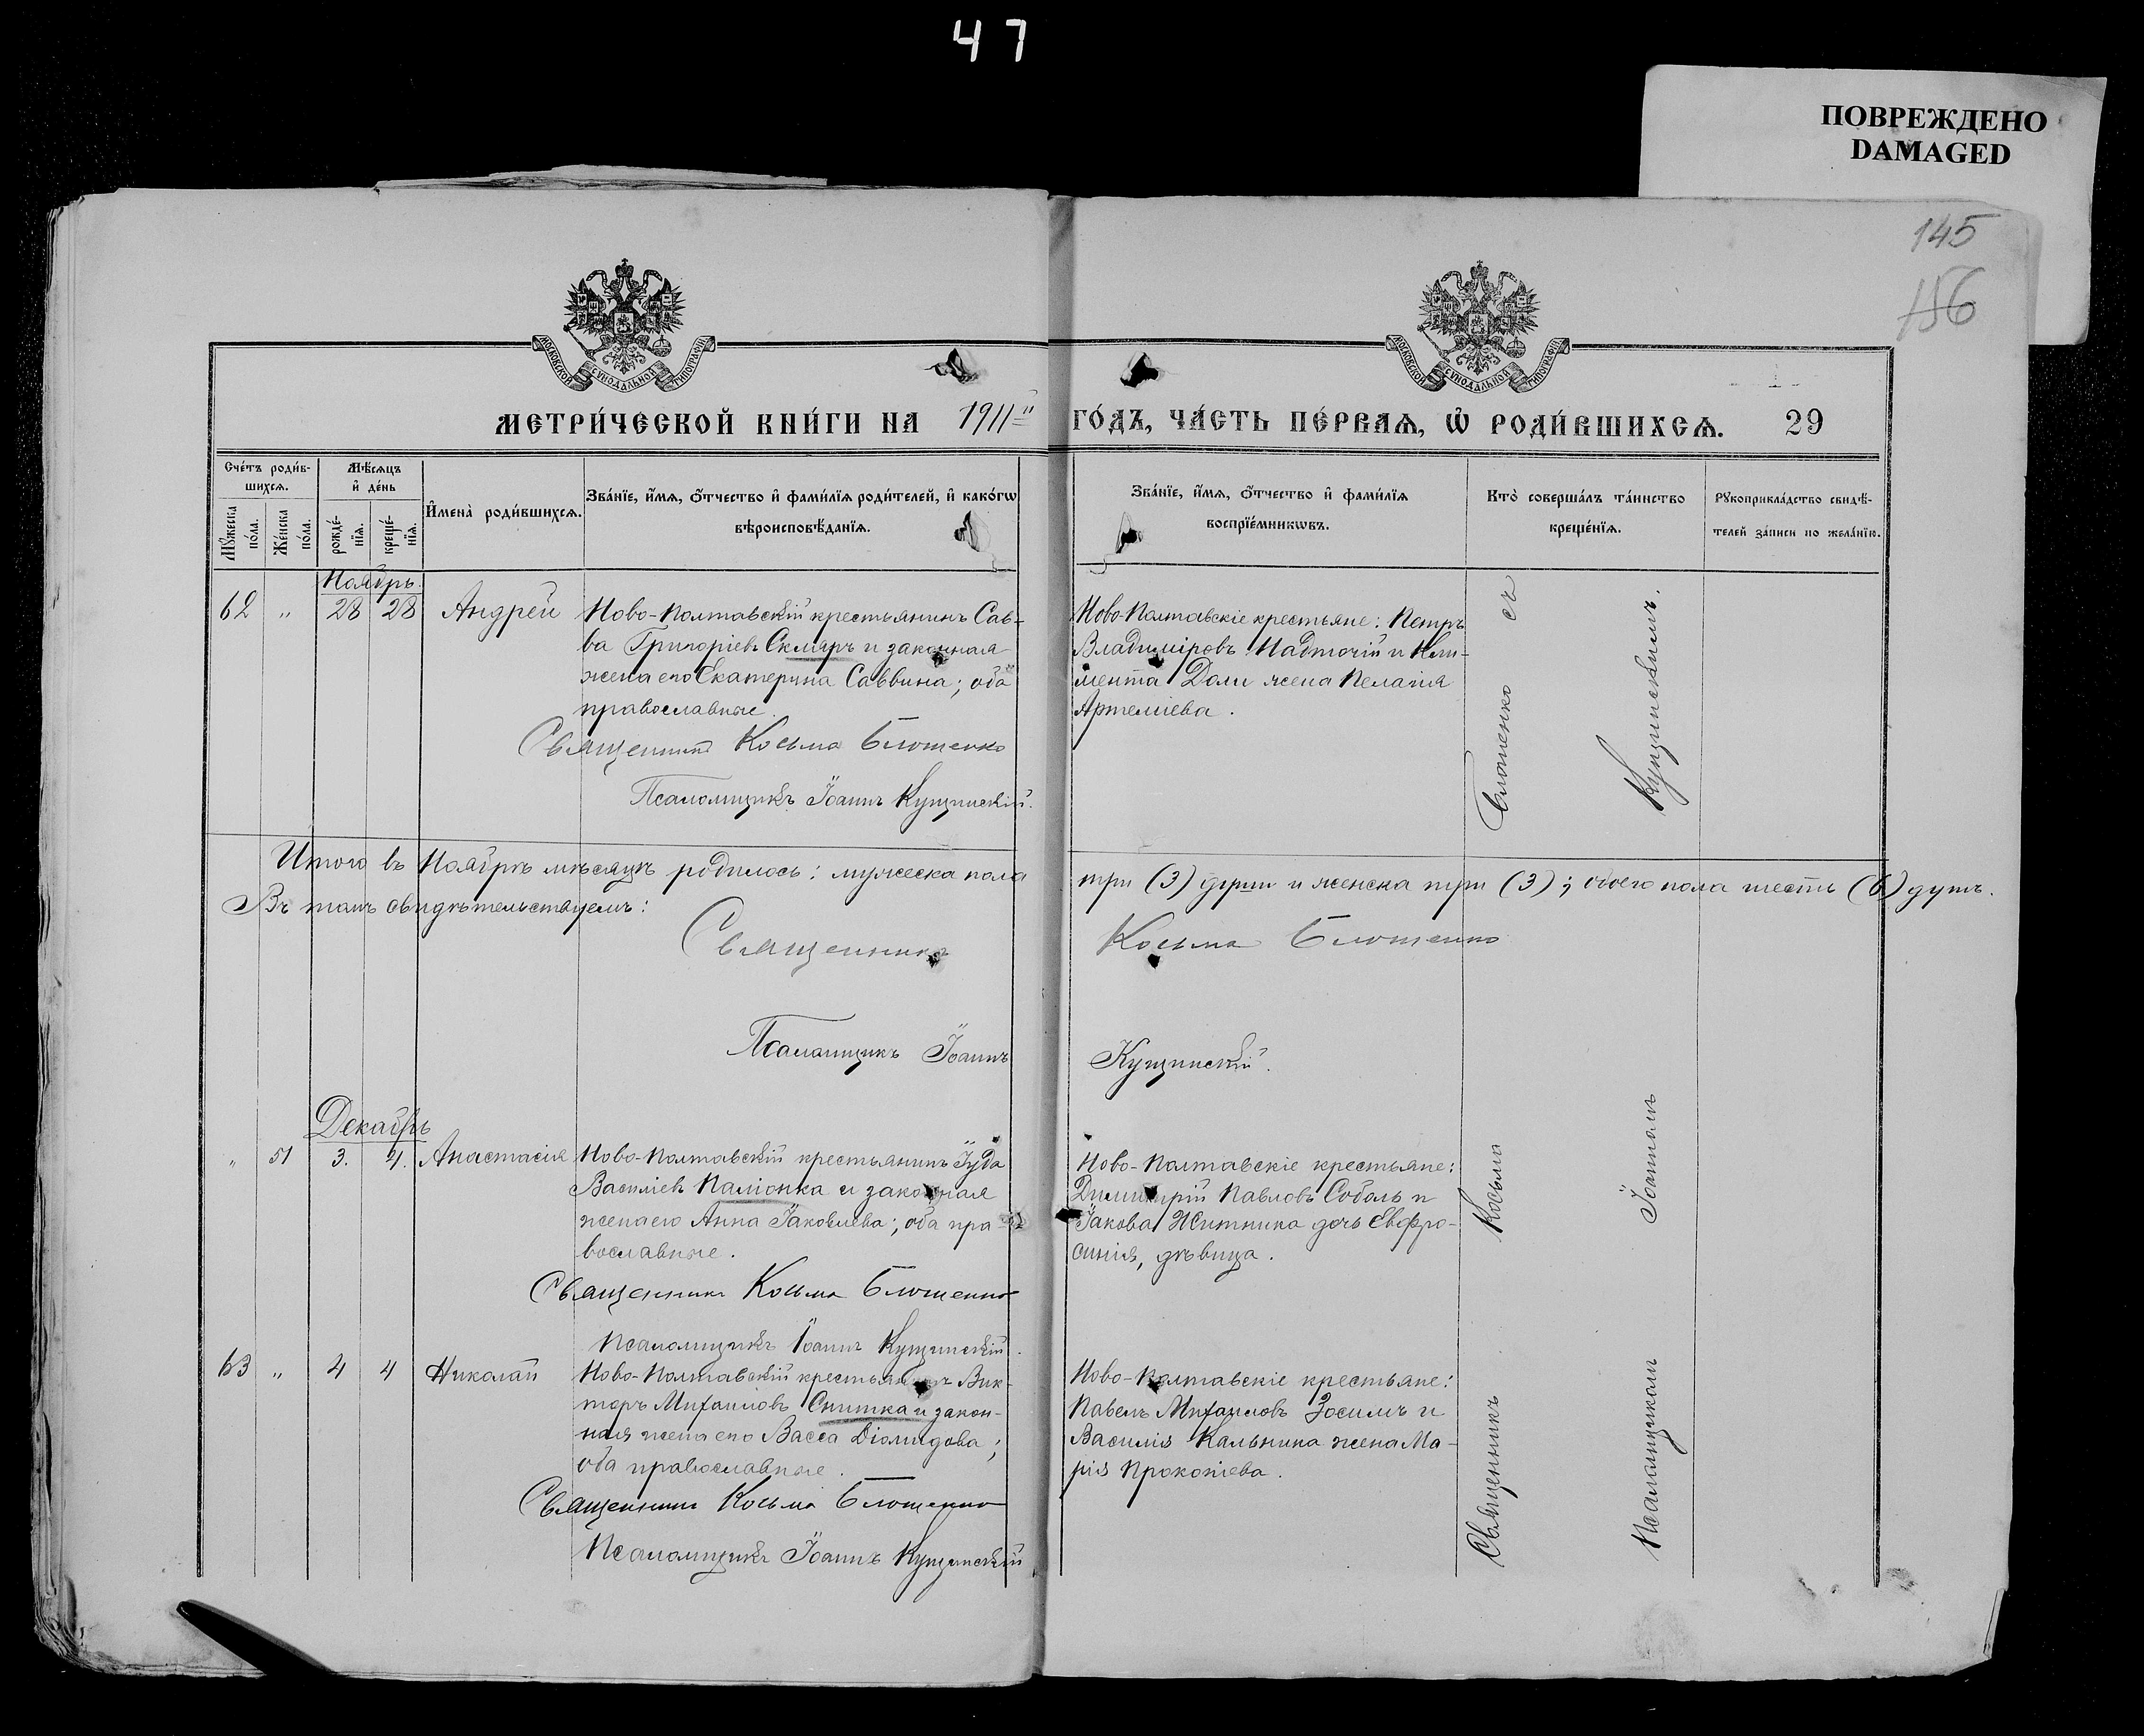 47
ПОВРЕЖДЕНО
DAMAGED
145
156
МОСКОВСКОЙ СѴНОДАЛЬНОЙ ТИПОГРАФІИ
МОСКОВСКОЙ СѴНОДАЛЬНОЙ ТИПОГРАФІИ
МЕТРИ́ЧЕСКОЙ КНИ́ГИ НА 1911й ГО́ДЪ, ЧА́СТЬ ПЕ́РВАѦ, Ѡ҆ РОДИ́ВШИХСѦ. 29
Сче́тъ роди́в-
шихсѧ.
Мꙋ́жеска
по́ла.
Же́нска
по́ла.
Мѣ́сѧцъ
и҆ де́нь
рожде́-
нїѧ.
креще́-
нїѧ.
И҆мена̀ роди́вшихсѧ.
Зва́нїе, и҆́мѧ, ѻ҆́тчество и҆ фами́лїѧ роди́телей, и҆ како́гѡ
вѣроисповѣ́данїѧ.
Зва́нїе, и҆́мѧ, ѻ҆́тчество и҆ фами́лїѧ
воспрїе́мникѡвъ.
Кто̀ соверша́лъ та́инство
креще́нїѧ.
Рꙋкоприкла́дство свидѣ́-
телей за́писи по жела́нїю.
Ноябрь.
62 " 28 28 Андрей
Ново-Полтавскій крестьянинъ Сав-
ва Григоріевъ Скляръ и законная
жена его Екатерина Саввина; оба
православные.
Священникъ Косьма Блошенко
Псаломщикъ Іоаннъ Кущинскій.
Ново-Полтавскіе крестьяне: Петръ
Владиміровъ Надточій и Кли-
мента Доли жена Пелагія
Артеміева.
Блошенко съ
Кущинскимъ.
Итого въ Ноябрѣ мѣсяцѣ родилось: мужеска пола три (3) души и женска три (3); обоего пола шесть (6) душъ.
Въ томъ свидѣтельствуемъ:
Священникъ Косьма Блошенко
Псаломщикъ Іоаннъ Кущинскій.
Декабрь
" 51 3. 4. Анастасія
Ново-Полтавскій крестьянинъ Іуда
Василіевъ Паліонка и законная
жена его Анна Іаковлева; оба пра-
вославные.
Священникъ Косьма Блошенко
Псаломщикъ Іоаннъ Кущинскій.
Ново-Полтавскіе крестьяне:
Димитрій Павловъ Соболь и
Іакова Житника дочь Евфро-
синія, дѣвица.
Косьма
Іоанномъ
63 " 4 4 Николай
Ново-Полтавскій крестьянинъ Вик-
торъ Михаиловъ Снитка и закон-
ная жена его Васса Діомидова;
оба православные.
Священникъ Косьма Блошенко
Псаломщикъ Іоаннъ Кущинскій
Ново-Полтавскіе крестьяне:
Павелъ Михаиловъ Зосимъ и
Василія Кальнина жена Ма-
рія Прокопіева.
Священникъ
Псаломщикомъ